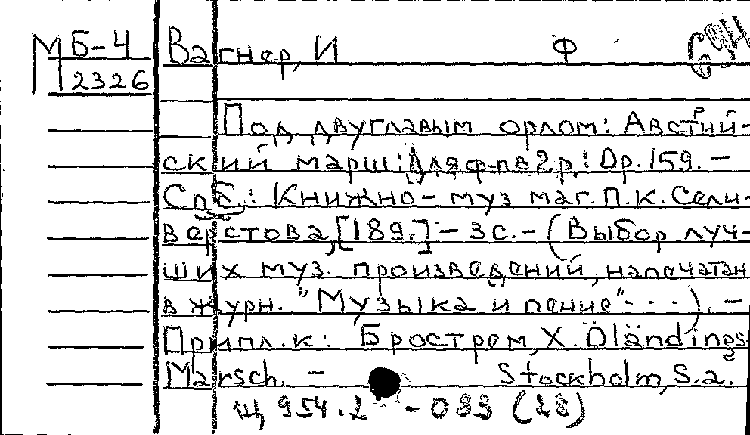 М Б-4 Вагнер, И Ф
2326
Под двуглавым орлом: Австий-
ский марш: Для ф-п в 2 р.: Op. 159. -
Спб.: Книжно-муз маг. П.К. Сели-
верстова, [189.] - 3с. - (Выбор луч-
ших муз. произведений, напечатан
в журн. "Музыка и пение"...). -
Припл. к: Бростром, Х. Öländings
Marsch. - Stockholm, S.a.
Щ 954.2 - 033 (28)